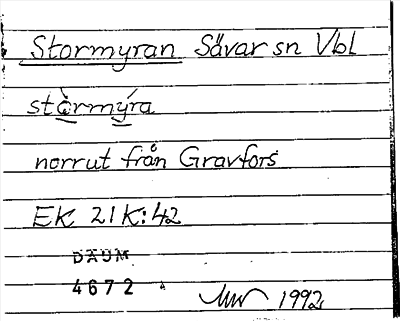 Stormyran Sävar sn Vbl
stòrmýra
norrut från Gravfors
EK 21K:42
DAUM
4672
1992